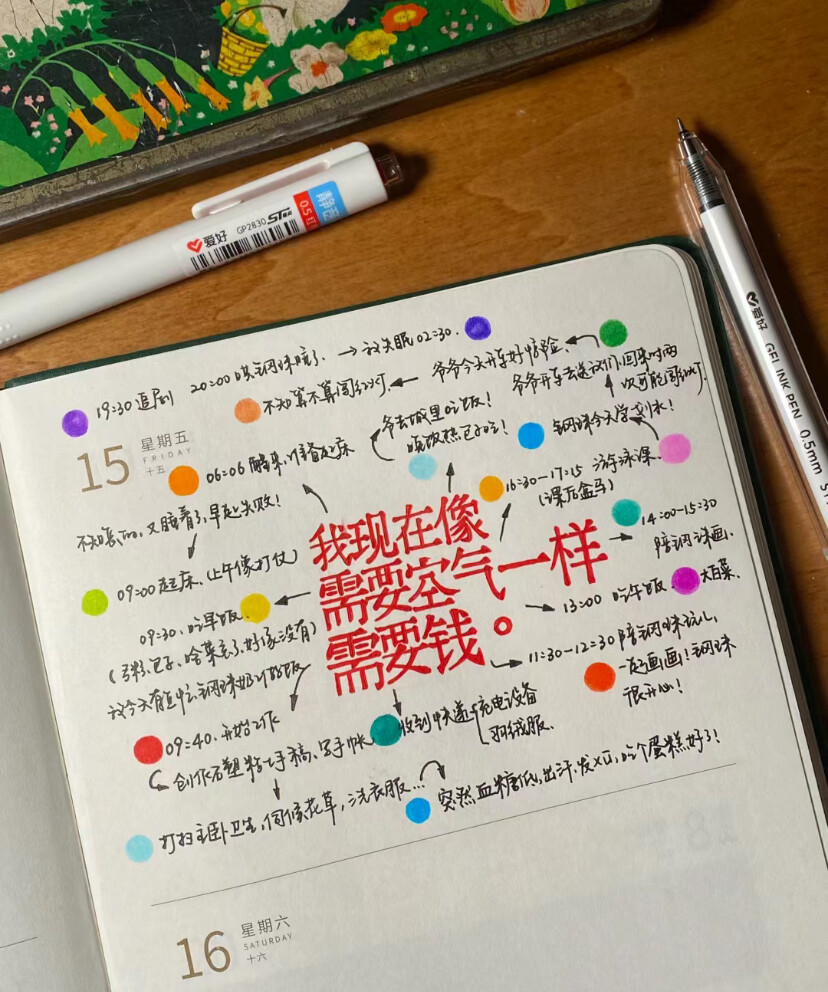 爱好
GP2830
ST
0.5
爱好 GEL INK PEN 0.5mm ST
19:30 追剧
20:00 哄钢球睡了。→ 我失眠02:30.
不知算不算闯红灯
爷爷今天开车好惊险、
爷爷开车去送我们、回来时两
次可能闯红灯.
15
星期五
FRIDAY
十五
06:06 醒来,准备起床
爷去城里吃饭!
晚饭热包子吃!
钢球今天学划水!
不知怎的,又睡着了,早起失败!
16:30-17:15 游泳课.
(课后盒马)
14:00-15:30
陪钢球画.
09:00 起床.(上午像打仗)
我现在像
需要空气一样
需要钱。
09:30、吃早饭.
13:00 吃午饭. 大白菜.
11:30-12:30 陪钢球玩儿,
一起画画!钢球
很开心!
09:40、开始工作
创作石塑粘土手稿、写手帐
收到快递
充电设备
羽绒服.
打扫主卧卫生,伺候花草,洗衣服...
突然血糖低,出汗、发抖,吃个蛋糕好了!
16
星期六
SATURDAY
十六